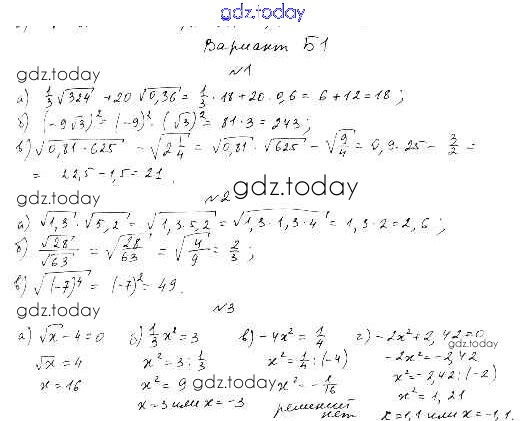 gdz.today
Вариант Б1
gdz.today
№1
а) 1/3 √324 + 20 √0,36 = 1/3 · 18 + 20 · 0,6 = 6 + 12 = 18;
б) (-9√3)² = (-9)² · (√3)² = 81 · 3 = 243;
в) √0,81 · 625 - √2 1/4 = √0,81 · √625 - √9/4 = 0,9 · 25 - 3/2 =
= 22,5 - 1,5 = 21.
gdz.today
№2
gdz.today
а) √1,3 · √5,2 = √1,3 · 5,2 = √1,3 · 1,3 · 4 = 1,3 · 2 = 2,6;
б) √28/√63 = √28/63 = √4/9 = 2/3;
в) √(-7)⁴ = (-7)² = 49.
gdz.today
№3
а) √x - 4 = 0
√x = 4
x = 16
б) 1/3 x² = 3
x² = 3 : 1/3
x² = 9
x = 3 или x = -3
в) -4x² = 1/4
x² = 1/4 : (-4)
x² = -1/16
решений нет
г) -2x² + 2,42 = 0
-2x² = -2,42
x² = -2,42 : (-2)
x² = 1,21
x = 1,1 или x = -1,1.
gdz.today
gdz.today
gdz.today